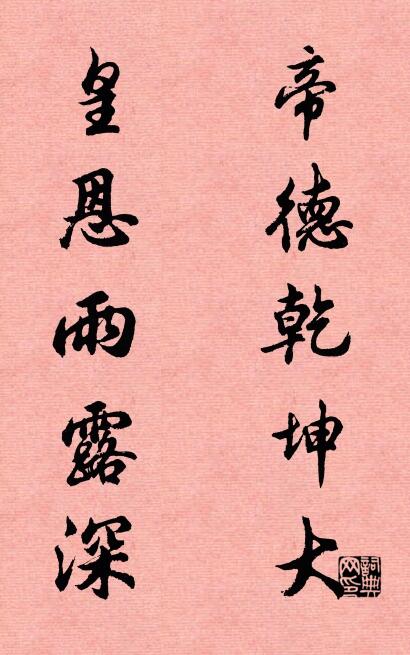 帝德乾坤大
皇恩雨露深
詞典网印